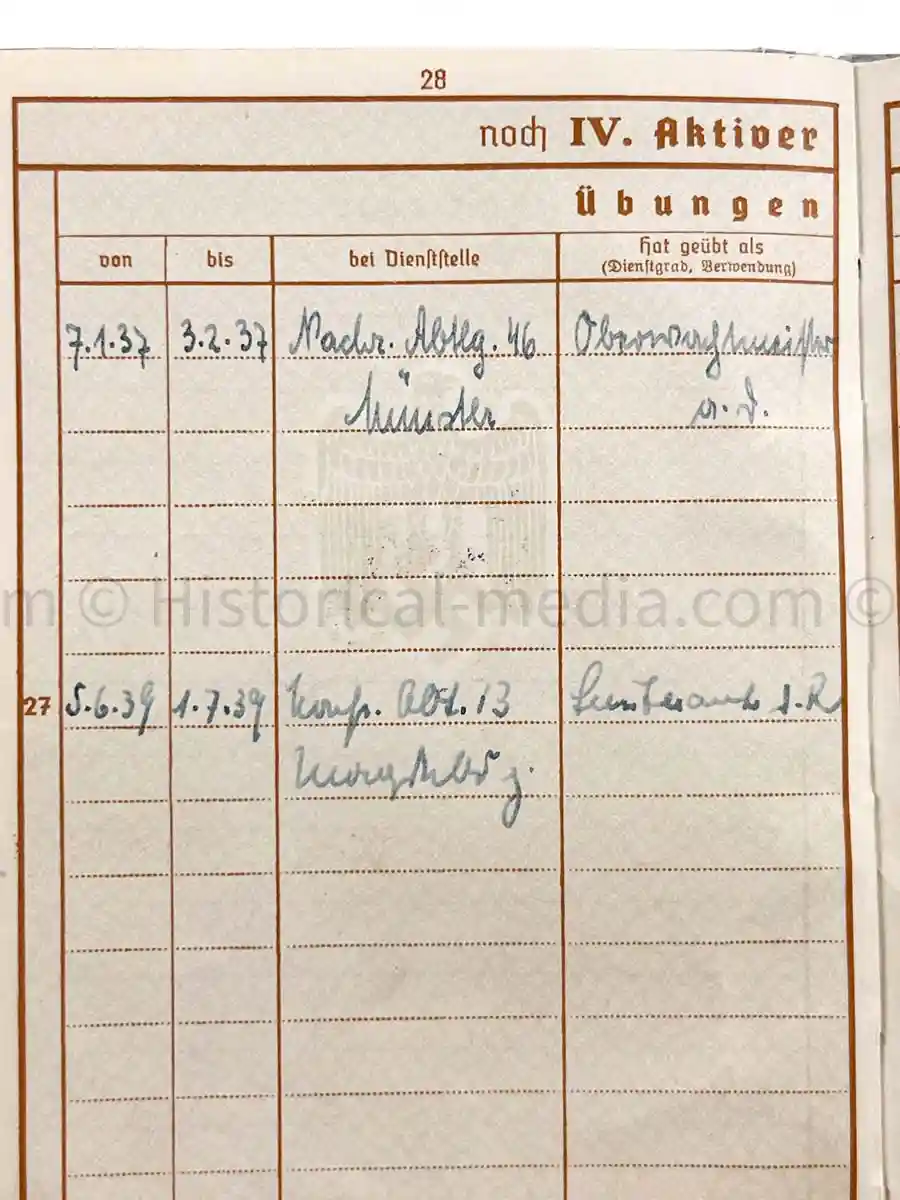 28
noch IV. Aktiver
Übungen
von bis bei Dienststelle Hat geübt als
(Dienstgrad, Verwendung)
7.1.37 3.2.37 Nachr. Abtlg. 46 Oberwachtmeister
Münster a. D.
m © Historical-media.com ©
27 5.6.39 1.7.39 Abt. 13 d. R
Magdeburg.